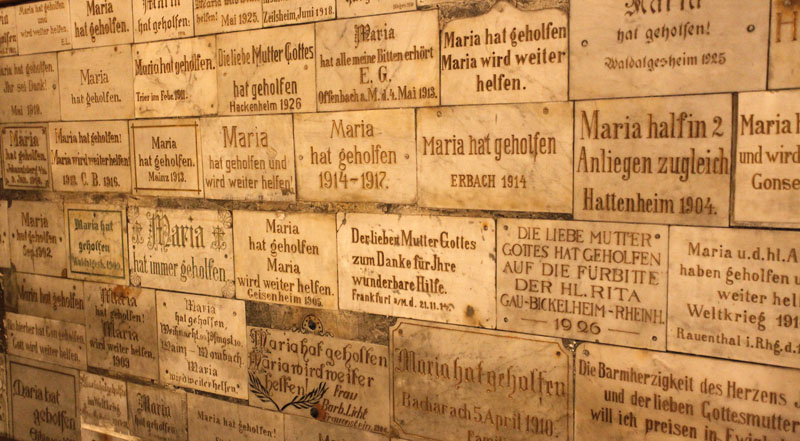 Maria hat
geholfen und
wird weiter
helfen.
Maria
hat geholfen.
Maria
hat geholfen.
hat geholfen
Mai 1925.
Zeilsheim, Juni 1918.
Maria
hat geholfen
Dank!
Mai 1919.
Maria
hat geholfen.
Maria hat geholfen.
Trier im Febr.
Die liebe Mutter Gottes
hat geholfen
Hackenheim 1926
Maria
hat alle meine Bitten erhört
E. G.
Offenbach a. M. d. 4. Mai 1913.
Maria hat geholfen
Maria wird weiter
helfen.
Maria
hat geholfen!
Waldalgesheim 1925
Maria
hat geholfen.
Maria hat geholfen!
Maria wird weiter helfen!
C. B. 1916.
Maria
hat geholfen.
Mainz 1913.
Maria
hat geholfen und
wird weiter helfen!
Maria
hat geholfen.
1914-1917.
Maria hat geholfen
ERBACH 1914
Maria half in 2
Anliegen zugleich
Hattenheim 1904.
Maria
und wird
Gonse
Maria
hat geholfen.
Maria hat
geholfen.
Maria
hat immer geholfen.
Maria
hat geholfen
Maria
wird weiter helfen!
Geisenheim 1905.
Der lieben Mutter Gottes
zum Danke für Ihre
wunderbare Hilfe.
Frankfurt a/M. d. 21.11.
DIE LIEBE MUTTER
GOTTES HAT GEHOLFEN
AUF DIE FÜRBITTE
DER HL. RITA
GAU-BICKELHEIM-RHEINH.
1926
Maria u. d. hl. A
haben geholfen u
weiter hel
Weltkrieg 191
Rauenthal i. Rhg. d. 1
Maria hat geholfen
Maria
hat geholfen.
Maria
wird weiter helfen.
1903
Maria
hat geholfen,
Weihnacht
Mainz-Mombach
Maria
wird weiter helfen!
Maria hat geholfen
Maria wird weiter
helfen!
Frau
Barb. Licht
Maria hat geholfen
Bacharach 5. April 1910.
Famil
Die Barmherzigkeit des Herzens J
und der lieben Gottesmutter
will ich preisen in Ewig
Maria
hat geholfen
Maria
hat geholfen
Maria hat geholfen